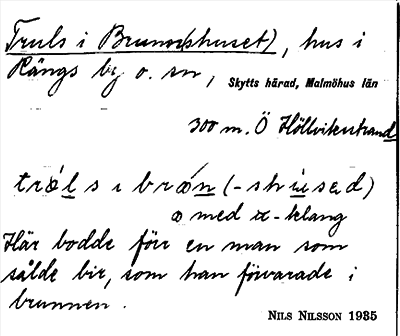 Truls i Brunn(shuset), hus i
Kängs by o. sn, Skytts härad, Malmöhus län
300 m. Ö Höllvikstrand
tröls i brön (-shused)
o med æ-klang
Här bodde förr en man som
sålde bir, som han förvarade i
brunnen.
NILS NILSSON 1935